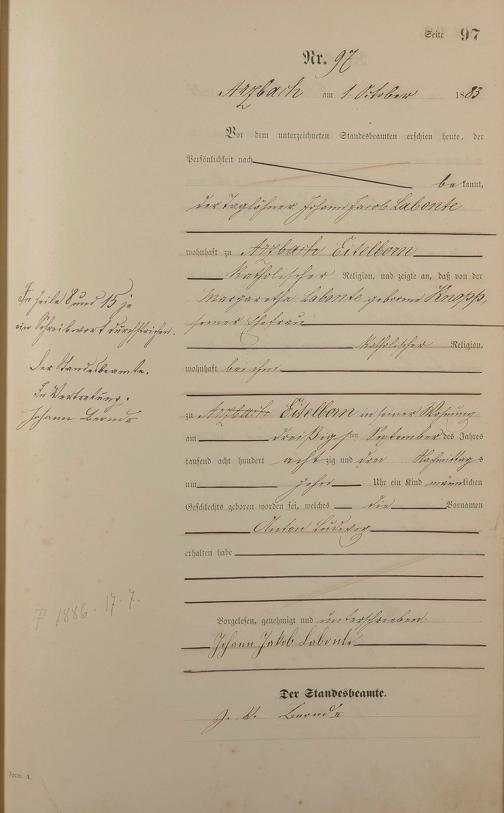 Seite 97
Nr. 97
Arzbach am 1 October 1883
Vor dem unterzeichneten Standesbeamten erschien heute, der
Persönlichkeit nach
bekannt,
der Taglöhner Johann Jacob Labonte
wohnhaft zu Arzbach Eitelborn
katholischer Religion, und zeigte an, daß von der
Margaretha Labonte geborene Knopp,
seiner Ehefrau
katholischer Religion,
wohnhaft bei ihm
zu Arzbach Eitelborn in seiner Wohnung
am dreißigsten September des Jahres
tausend acht hundert acht zig und drei Nachmittags
um zehn Uhr ein Kind männlichen
Geschlechts geboren worden sei, welches die Vornamen
Anton Ludwig
erhalten habe
Vorgelesen, genehmigt und unterschrieben
Johann Jakob Labonte
Der Standesbeamte.
J. V.
In Zeile 8 und 15 je
ein Schreibwort durchstrichen.
Der Standesbeamte.
In Vertretung.
Johann
1886. 17. 7.
Form. A.